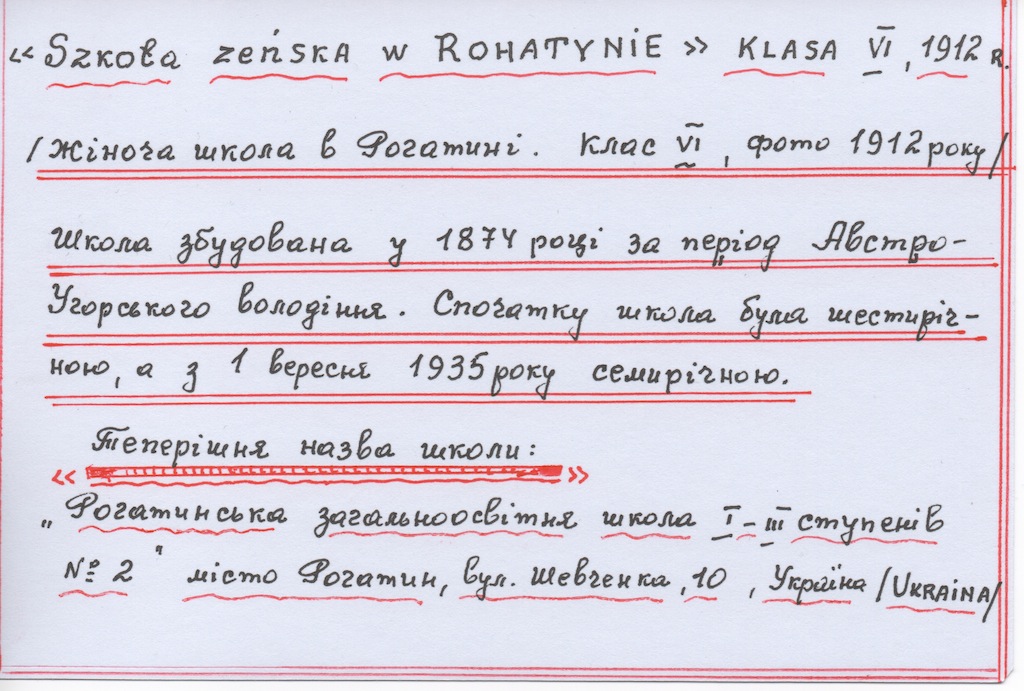 « Szkoła zeńska w Rohatynie » klasa VI, 1912 r.
/Жіноча школа в Рогатині. Клас VI, фото 1912 року/
Школа збудована у 1874 році за період Австро-
Угорського володіння. Спочатку школа була шестиріч-
ною, а з 1 вересня 1935 року семирічною.
Теперішня назва школи:
« »
„Рогатинська загальноосвітня школа І-ІІІ ступенів
№ 2" місто Рогатин, вул. Шевченка, 10, Україна /Ukraina/